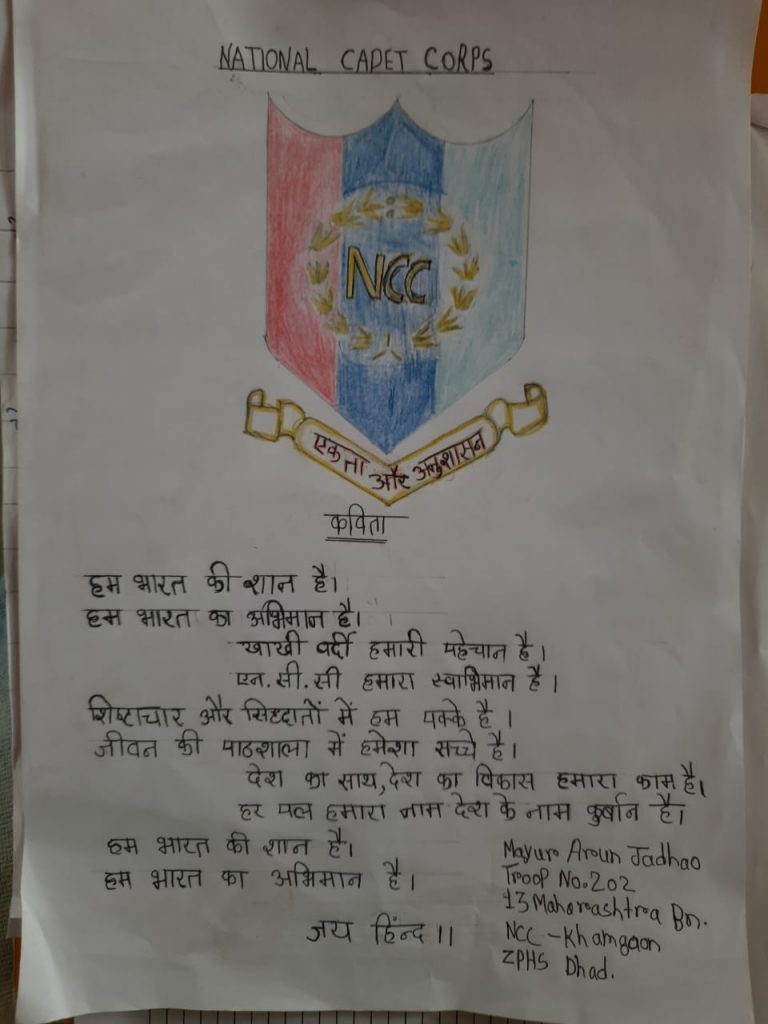 NATIONAL CADET CORPS
NCC
एकता और अनुशासन
कविता
हम भारत की शान है।
हम भारत का अभिमान है।
खाखी वर्दी हमारी पहेचान है।
एन.सी.सी हमारा स्वाभिमान है।
शिष्टाचार और सिद्दातों में हम पक्के है।
जीवन की पाठशाला में हमेशा सच्चे है।
देश का साथ,देश का विकास हमारा काम है।
हर पल हमारा नाम देश के नाम कुर्बान है।
हम भारत की शान है।
हम भारत का अभिमान है।
जय हिंन्द।।
Mayur Arun Jadhao
Troop No.202
13 Maharashtra Bn.
NCC - Khamgaon
ZPHS Dhad.